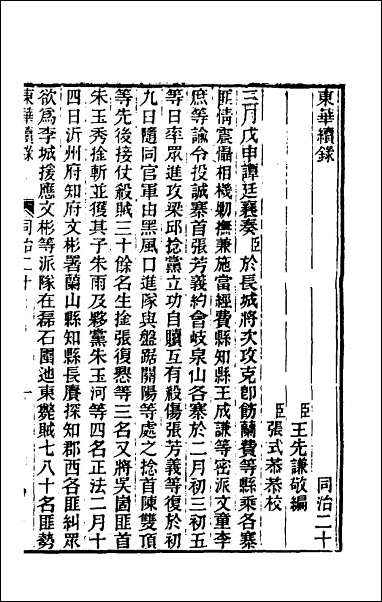 東華續錄
同治二十
臣王先謙敬編
臣張式恭恭校
三月戊申譚廷襄奏臣於長城將次攻克卽飭蘭費等縣乘各寨
匪情震懾相機勦撫兼施當經費縣知縣王成謙等密派文童李
庶等諭令投誠寨首張芳義約會岐泉山各寨於二月初三初五
等日率眾進攻梁邱捻黨立功自贖互有殺傷張芳義等復於初
九日隨同官軍由黑風口進隊與盤踞關陽等處之捻首陳雙頂
等先後接仗殺賊三十餘名生擒張復懋等三名又將吳箇匪首
朱玉秀擒斬並獲其子朱雨及夥黨朱玉河等四名正法二月十
四日沂州府知府文彬署蘭山縣知縣長賡探知郡西各匪糾眾
欲爲李城援應文彬等派隊在磊石閣池東斃賊七八十名匪勢
東華續錄
同治二十
一